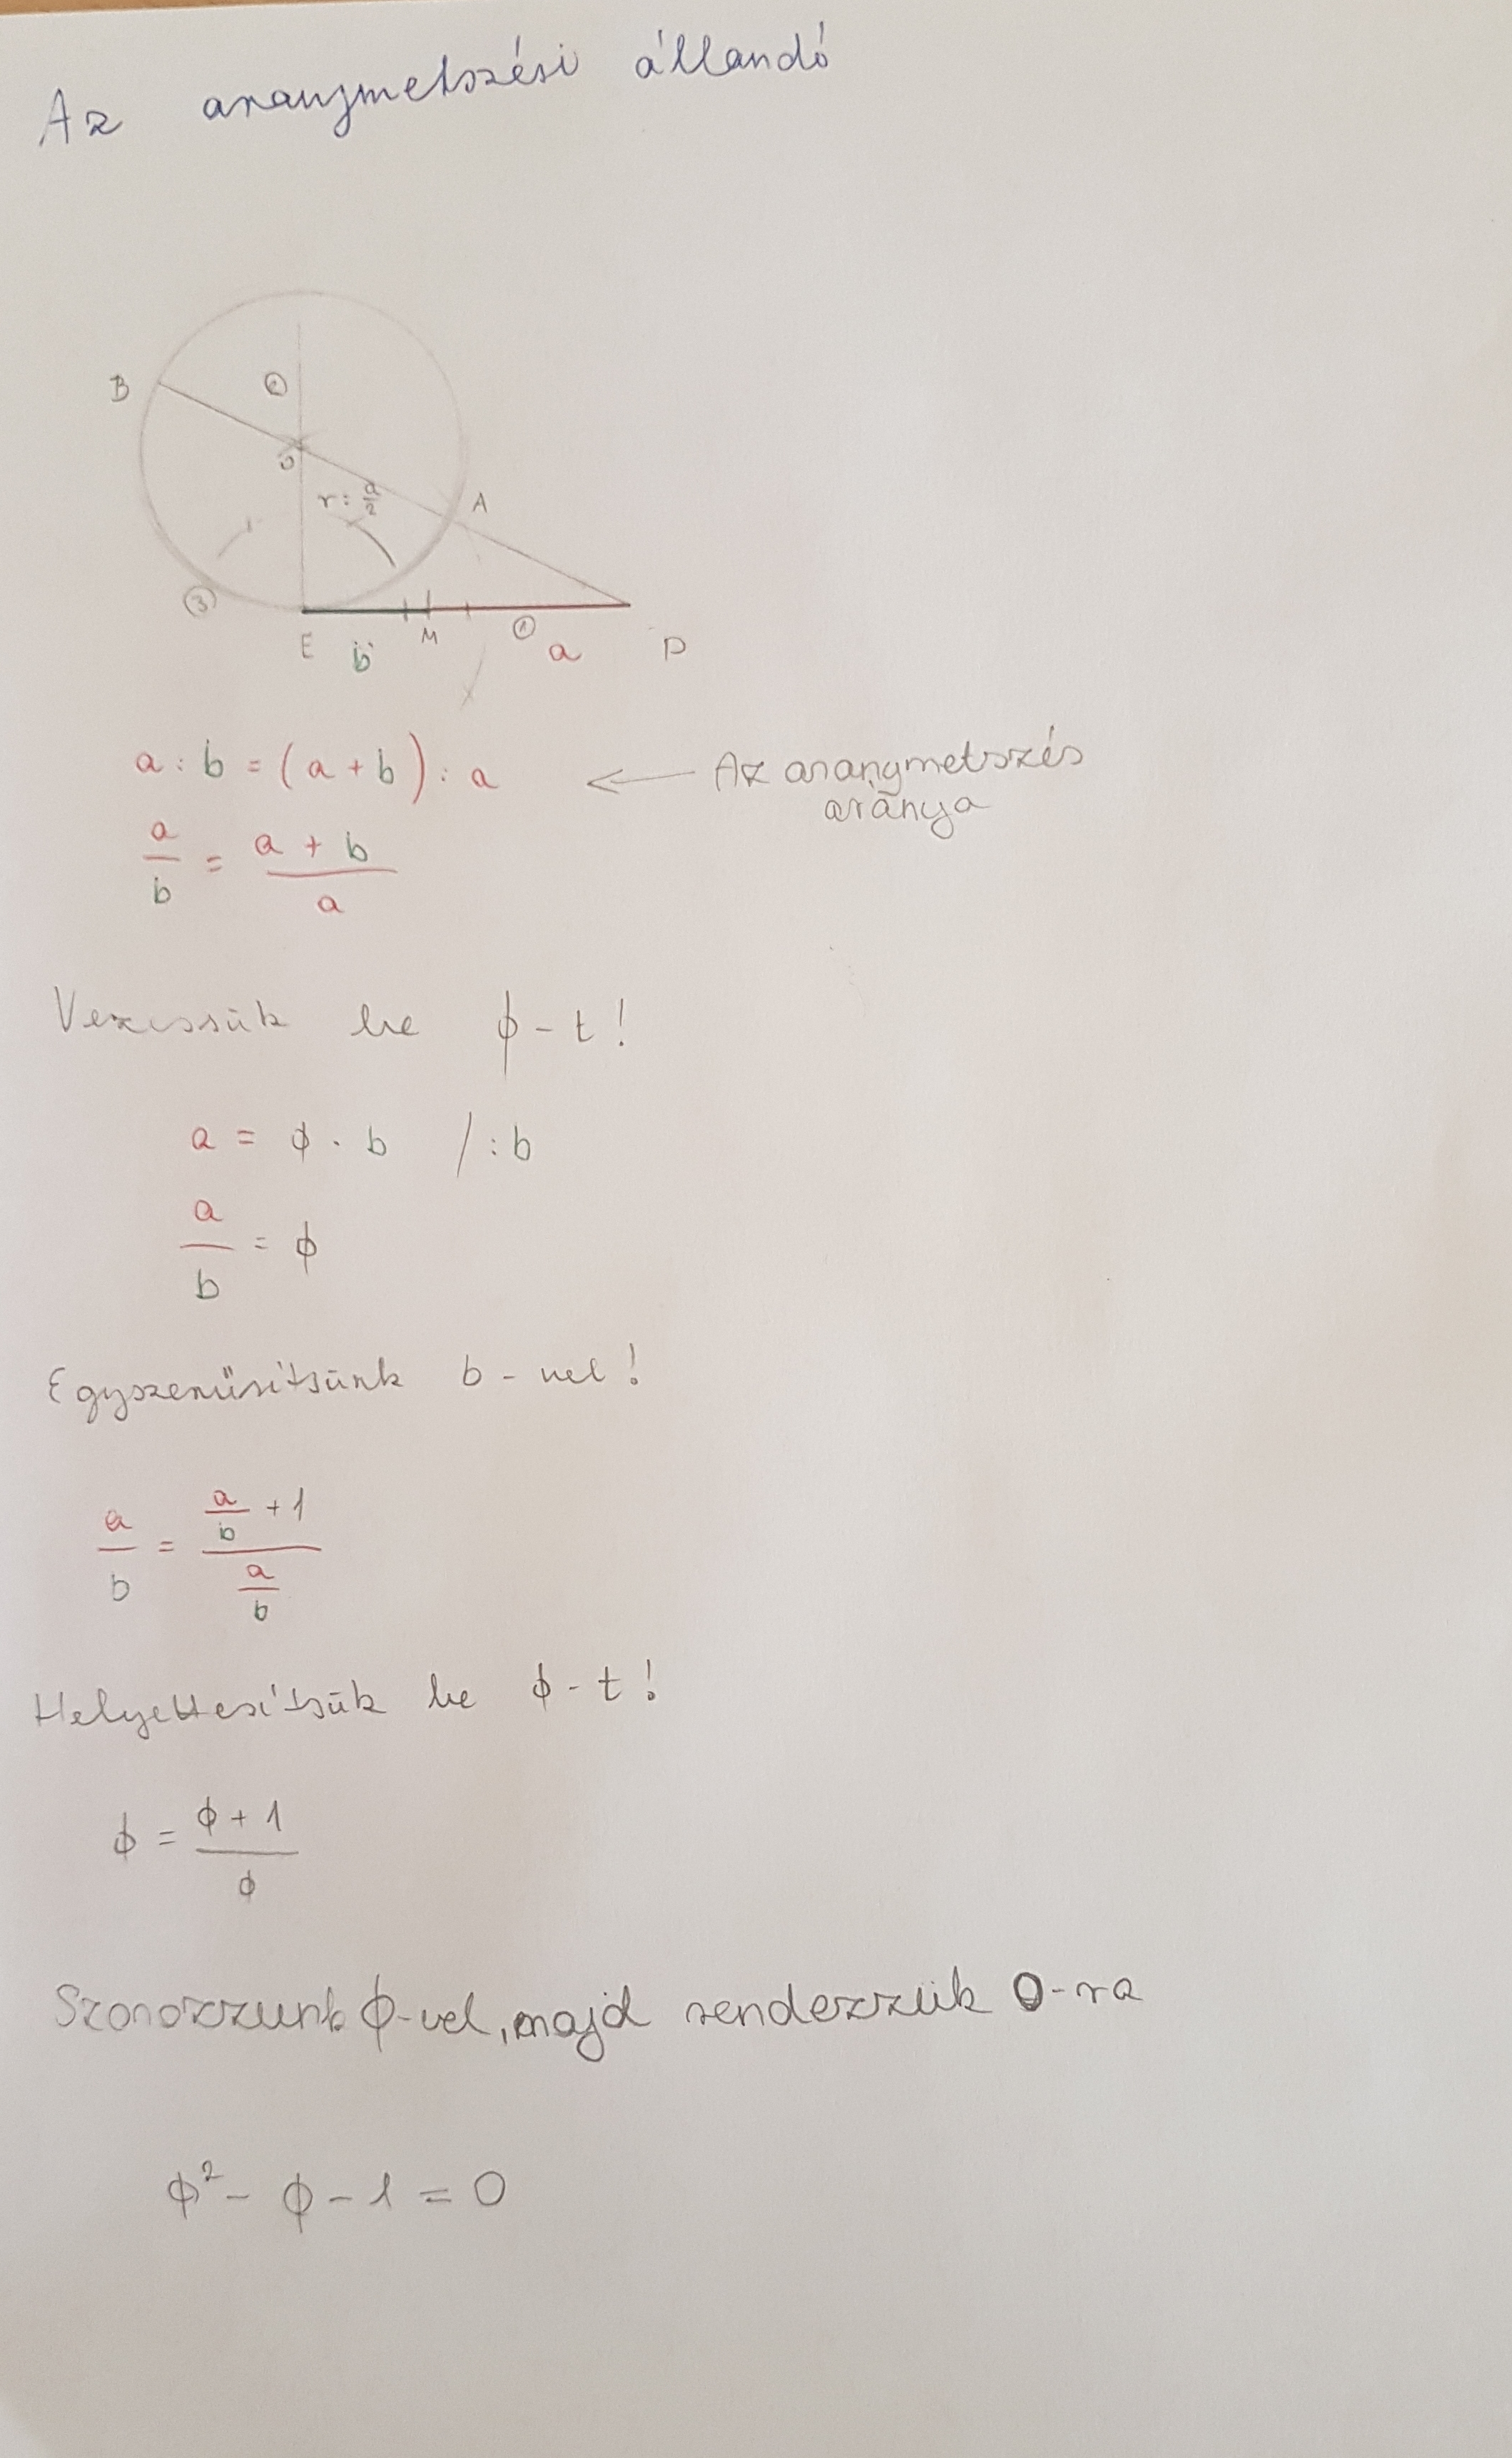 Az aranymetszési állandó
B
②
O
r = a/2
A
③
E b M ① a P
a : b = (a + b) : a ← Az aranymetszés
aránya
a/b = (a + b)/a
Vezessük be ϕ-t!
a = ϕ · b /:b
a/b = ϕ
Egyszerűsítsünk b-vel!
a/b = (a/b + 1)/(a/b)
Helyettesítsük be ϕ-t!
ϕ = (ϕ + 1)/ϕ
Szorozzunk ϕ-vel, majd rendezzük 0-ra
ϕ² - ϕ - 1 = 0